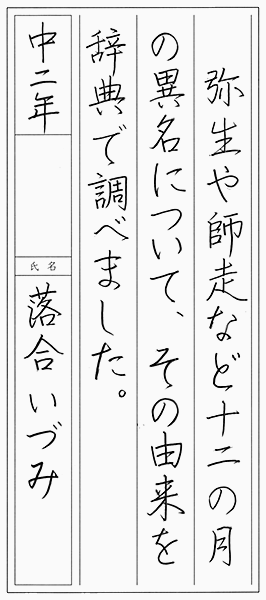 弥生や師走など十二の月
の異名について、その由来を
辞典で調べました。
中二年
氏名
落合いづみ